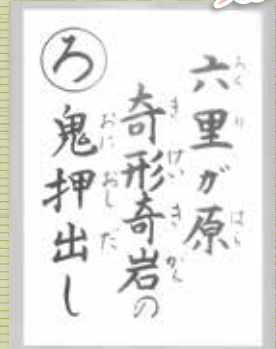 六里が原
奇形奇岩の
鬼押出し
ろ